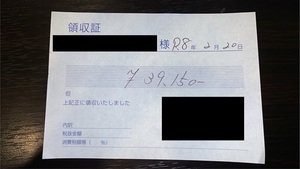 領収証
様 R8年2月20日
¥39,150-
但
上記正に領収いたしました
内訳
税抜金額
消費税額等( %)